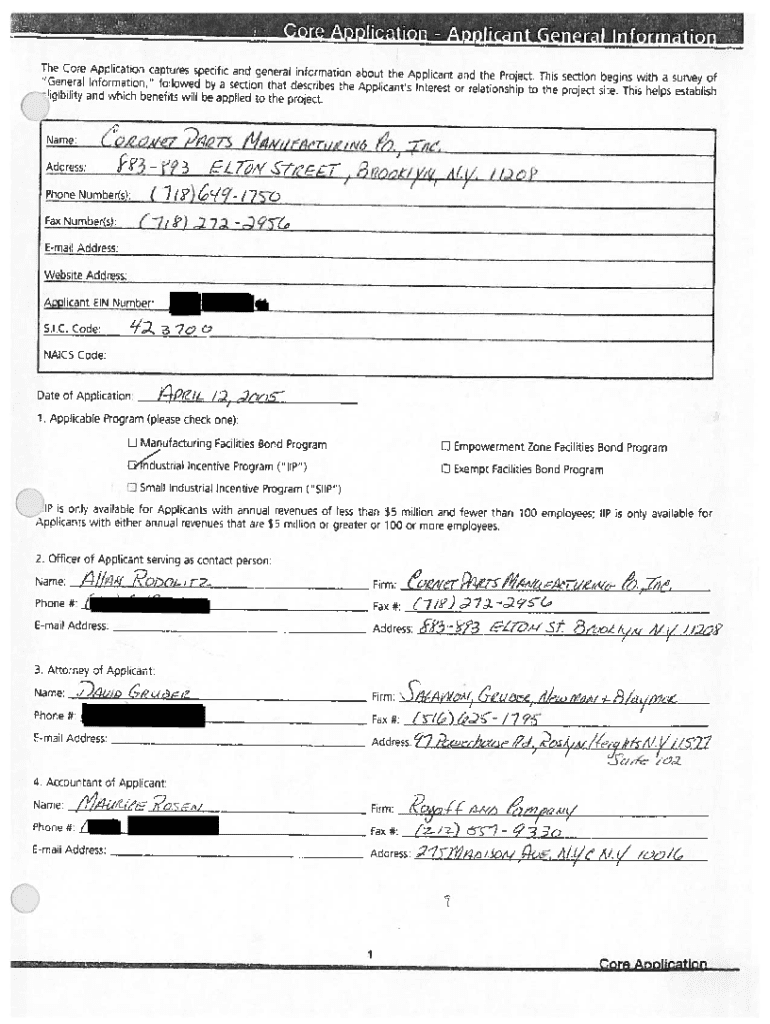 Core Application - Applicant General Information
The Core Application captures specific and general information about the Applicant and the Project. This section begins with a survey of
"General Information," followed by a section that describes the Applicant's Interest or relationship to the project site. This helps establish
eligibility and which benefits will be applied to the project.
Name: CORONET PARTS MANUFACTURING CO., INC.
Address: 883-893 ELTON STREET, BROOKLYN, N.Y. 11208
Phone Number(s): (718) 649-1750
Fax Number(s): (718) 272-2956
E-mail Address:
Website Address:
Applicant EIN Number:
S.I.C. Code: 423700
NAICS Code:
Date of Application: APRIL 12, 2005
1. Applicable Program (please check one):
☐ Manufacturing Facilities Bond Program ☐ Empowerment Zone Facilities Bond Program
☑ Industrial Incentive Program ("IIP") ☐ Exempt Facilities Bond Program
☐ Small Industrial Incentive Program ("SIIP")
IIP is only available for Applicants with annual revenues of less than $5 million and fewer than 100 employees; IIP is only available for
Applicants with either annual revenues that are $5 million or greater or 100 or more employees.
2. Officer of Applicant serving as contact person:
Name: Allan RODOLITZ Firm: CORNET PARTS MANUFACTURING CO., INC.
Phone #: Fax #: (718) 272-2956
E-mail Address: Address: 883-893 ELTON ST. BROOKLYN N.Y 11208
3. Attorney of Applicant:
Name: DAVID GRUBER Firm: GRUBER, NEWMAN + Blaymore
Phone # Fax #: (516) 625-1795
E-mail Address: Address: 97 Powerhouse Rd, Roslyn Heights N.Y 11577
Suite 102
4. Accountant of Applicant:
Name: MAURICE ROSEN Firm: AND COMPANY
Phone #: Fax #: (212) 557-9330
E-mail Address: Address: 275 MADISON AVE. N.Y.C N.Y 10016
1
Core Application